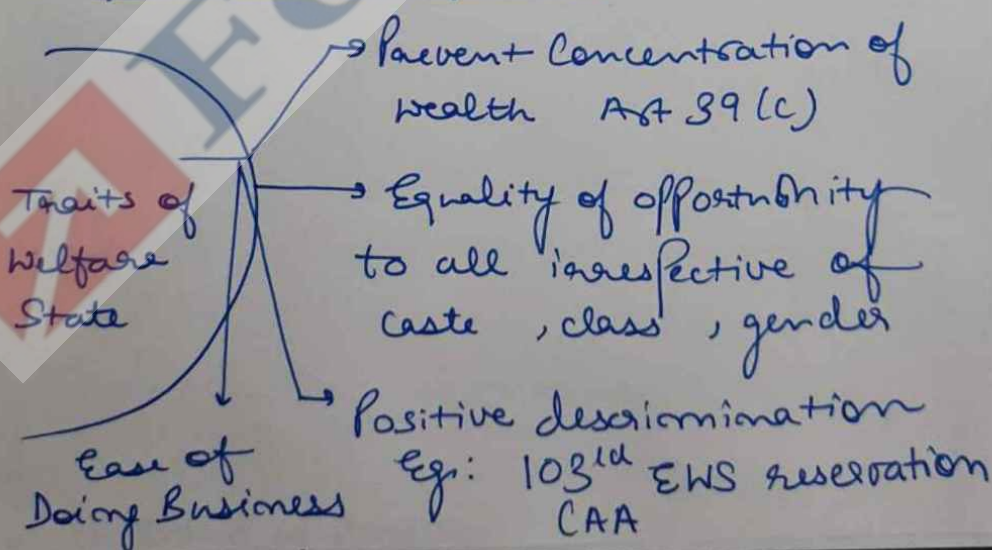 Traits of
Welfare
State
Prevent Concentration of
wealth Art 39 (c)
Equality of opportunity
to all irrespective of
caste , class , gender
Positive descrimination
Eg: 103rd EWS reservation
CAA
Ease of
Doing Business